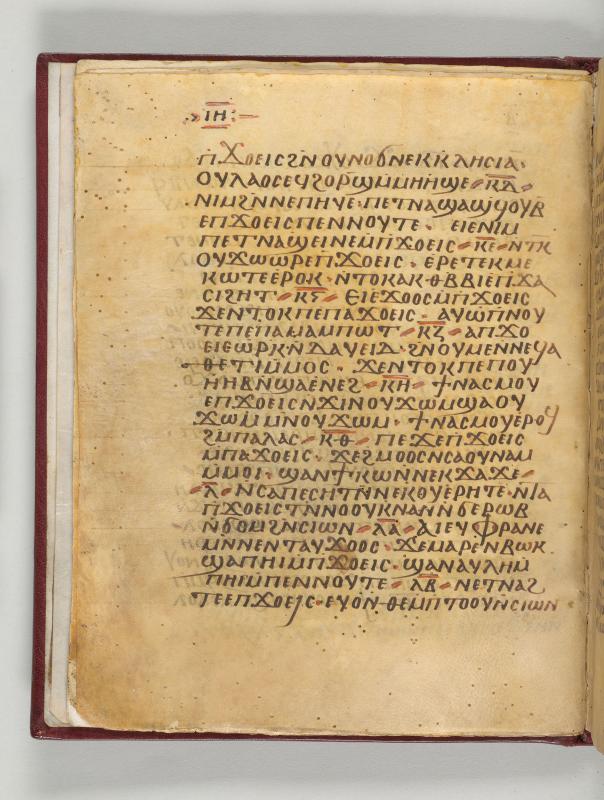 ⲒⲎ
ⲠϪⲞⲈⲒⲤϨⲚⲞⲨⲚⲞϬⲚⲈⲔⲔⲖⲎⲤⲒⲀ·
ⲞⲨⲖⲀⲞⲤⲈϤϨⲞⲢϢⲘⲘⲎⲎϢⲈ ⲔⲆ
ⲚⲒⲘϨⲚⲚⲈⲠⲎⲨⲈ·ⲠⲈⲦⲚⲀϢⲀϢϤⲞⲨⲂ
ⲈⲠϪⲞⲈⲒⲤⲠⲈⲚⲚⲞⲨⲦⲈ· ⲈⲒⲈⲚⲒⲘ
ⲠⲈⲦⲚⲀϢⲈⲒⲚⲈⲘⲠϪⲞⲈⲒⲤ ⲔⲈ ⲚⲦⲔ
ⲞⲨϪⲰⲰⲢⲈⲠϪⲞⲈⲒⲤ·ⲈⲢⲈⲦⲈⲔⲘⲈ
ⲔⲰⲦⲈⲈⲢⲞⲔ·ⲚⲦⲞⲔⲀⲔⲐⲂⲂⲒⲈⲠϪⲀ
ⲤⲒϨⲎⲦ ⲔⲊ ⲈⲒⲈϪⲞⲞⲤⲘⲠϪⲞⲈⲒⲤ
ϪⲈⲚⲦⲞⲔⲠⲈⲠⲀϪⲞⲈⲒⲤ·ⲀⲨⲰⲠⲚⲞⲨ
ⲦⲈⲠⲈⲠⲀⲘⲀⲘⲠⲰⲦ ⲔⲌ ⲀⲠϪⲞ
ⲈⲒⲈⲰⲢⲔⲚⲆⲀⲨⲈⲒⲆ·ϨⲚⲞⲨⲘⲈⲚⲚⲈϤⲀ
ⲐⲈⲦⲒⲘⲘⲞⲤ· ϪⲈⲚⲦⲞⲔⲠⲈⲠⲞⲨ
ⲎⲎⲂⲚϢⲀⲈⲚⲈϨ ⲔⲎ ϮⲚⲀⲤⲘⲞⲨ
ⲈⲠϪⲞⲈⲒⲤⲚϪⲒⲚⲞⲨϪⲰⲘϢⲀⲞⲨ
ϪⲰⲘⲘⲚⲞⲨϪⲰⲘ·ϮⲚⲀⲤⲘⲞⲨⲈⲢⲞϤ
ϨⲘⲠⲀⲖⲀⲤ ⲔⲐ ⲠⲈϪⲈⲠϪⲞⲈⲒⲤ
ⲘⲠⲀϪⲞⲈⲒⲤ·ϪⲈϨⲘⲞⲞⲤⲚⲤⲀⲞⲨⲚⲀⲘ
ⲘⲘⲞⲒ·ϢⲀⲚϮⲔⲰⲚⲚⲈⲔϪⲀϪⲈ
Ⲗ ⲚⲤⲀⲠⲈⲤⲎⲦⲚⲚⲈⲔⲞⲨⲈⲢⲎⲦⲈ·ⲚⲀ
ⲠϪⲞⲈⲒⲤⲦⲚⲚⲞⲞⲨⲔⲚⲀⲚⲚϬⲈⲢⲰⲂ
ⲚϬⲞⲘϨⲚⲤⲒⲰⲚ ⲖⲀ ⲀⲒⲈⲨⲪⲢⲀⲚⲈ
ⲘⲚⲚⲈⲚⲦⲀⲨϪⲞⲞⲤ·ϪⲈⲘⲀⲢⲈⲚⲂⲰⲔ
ϢⲀⲠⲎⲒⲘⲠϪⲞⲈⲒⲤ·ϢⲀⲚⲀⲨⲖⲎⲘ
ⲠⲎⲒⲘⲠⲈⲚⲚⲞⲨⲦⲈ ⲖⲂ ⲚⲈⲦⲚⲀϨ
ⲦⲈⲈⲠϪⲞⲈⲒⲤ·ⲈⲨⲞⲚⲐⲈⲘⲠⲦⲞⲞⲨⲚⲤⲒⲰⲚ